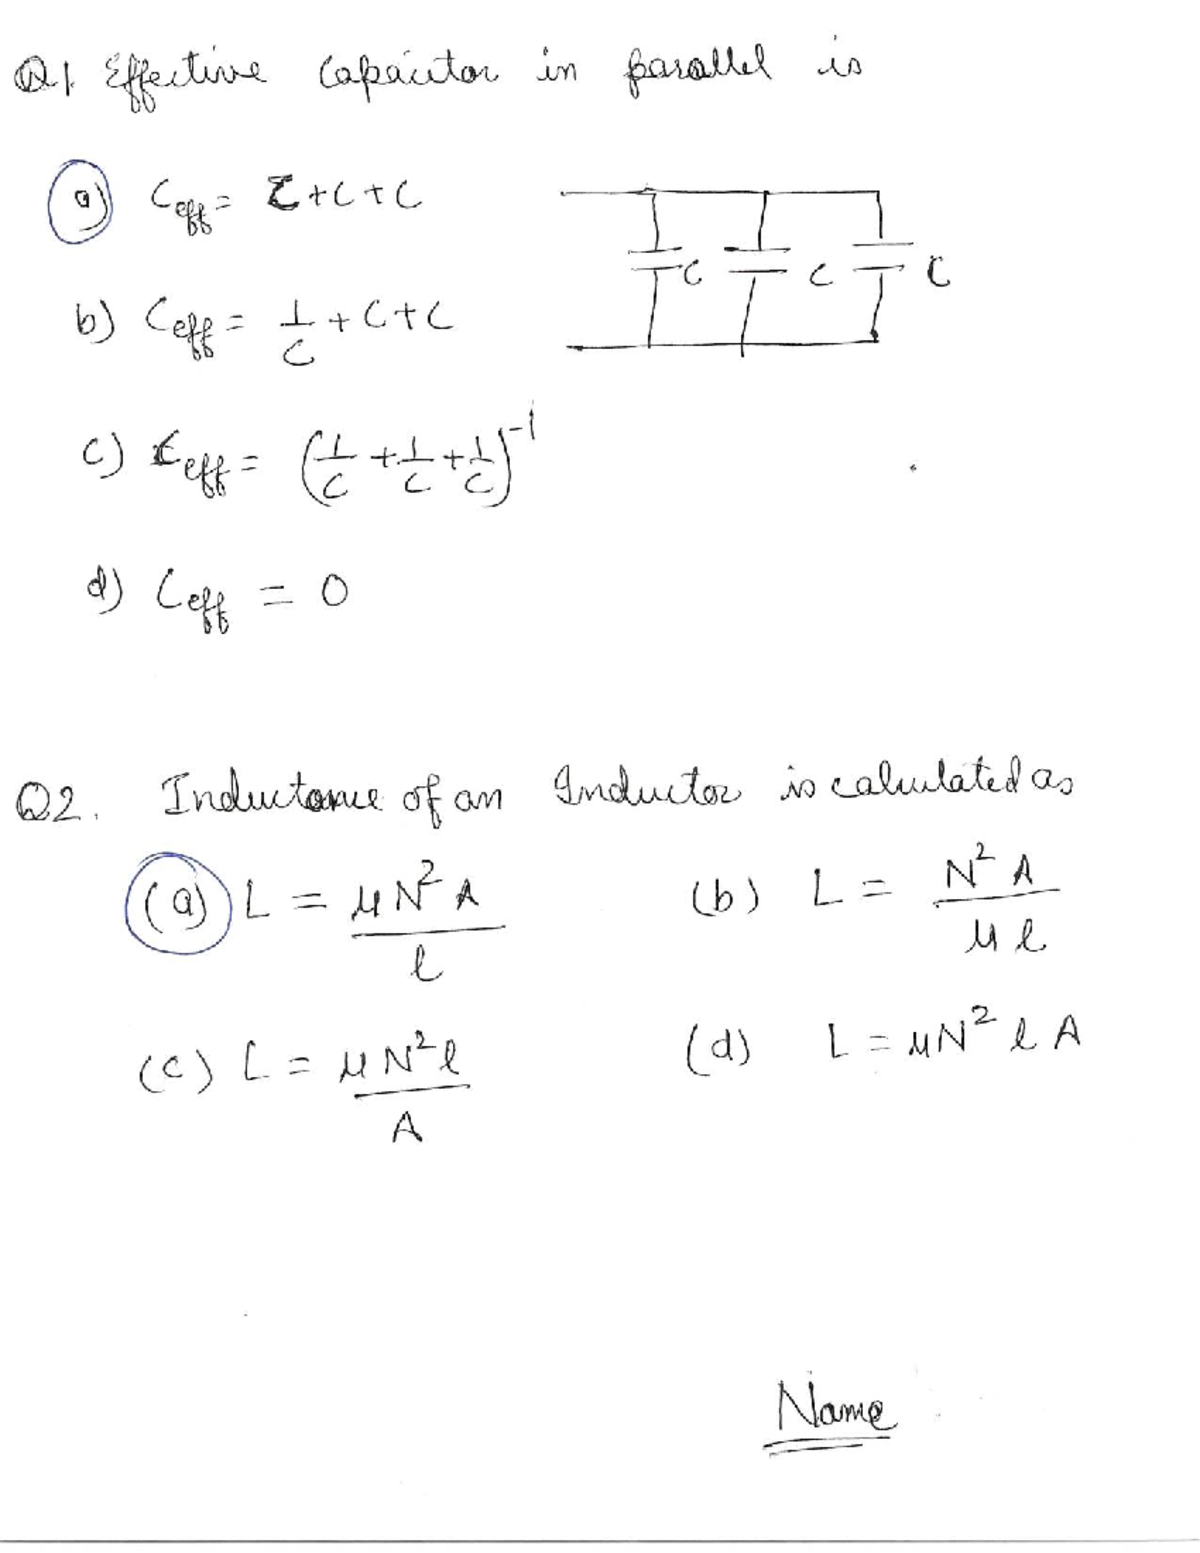 Q1. Effective Capacitor in parallel is
a) Ceff = C + C + C
C C C
b) Ceff = 1/C + C + C
c) Ceff = (1/C + 1/C + 1/C)^-1
d) Ceff = 0
Q2. Inductance of an Inductor is calculated as
(a) L = μN²A / l
(b) L = N²A / μl
(c) L = μN²l / A
(d) L = μN² l A
Name